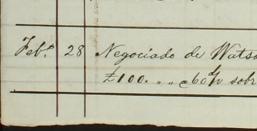 Feb.º 28 Negociado de Watso
£100. . , , 60 d/v sobr